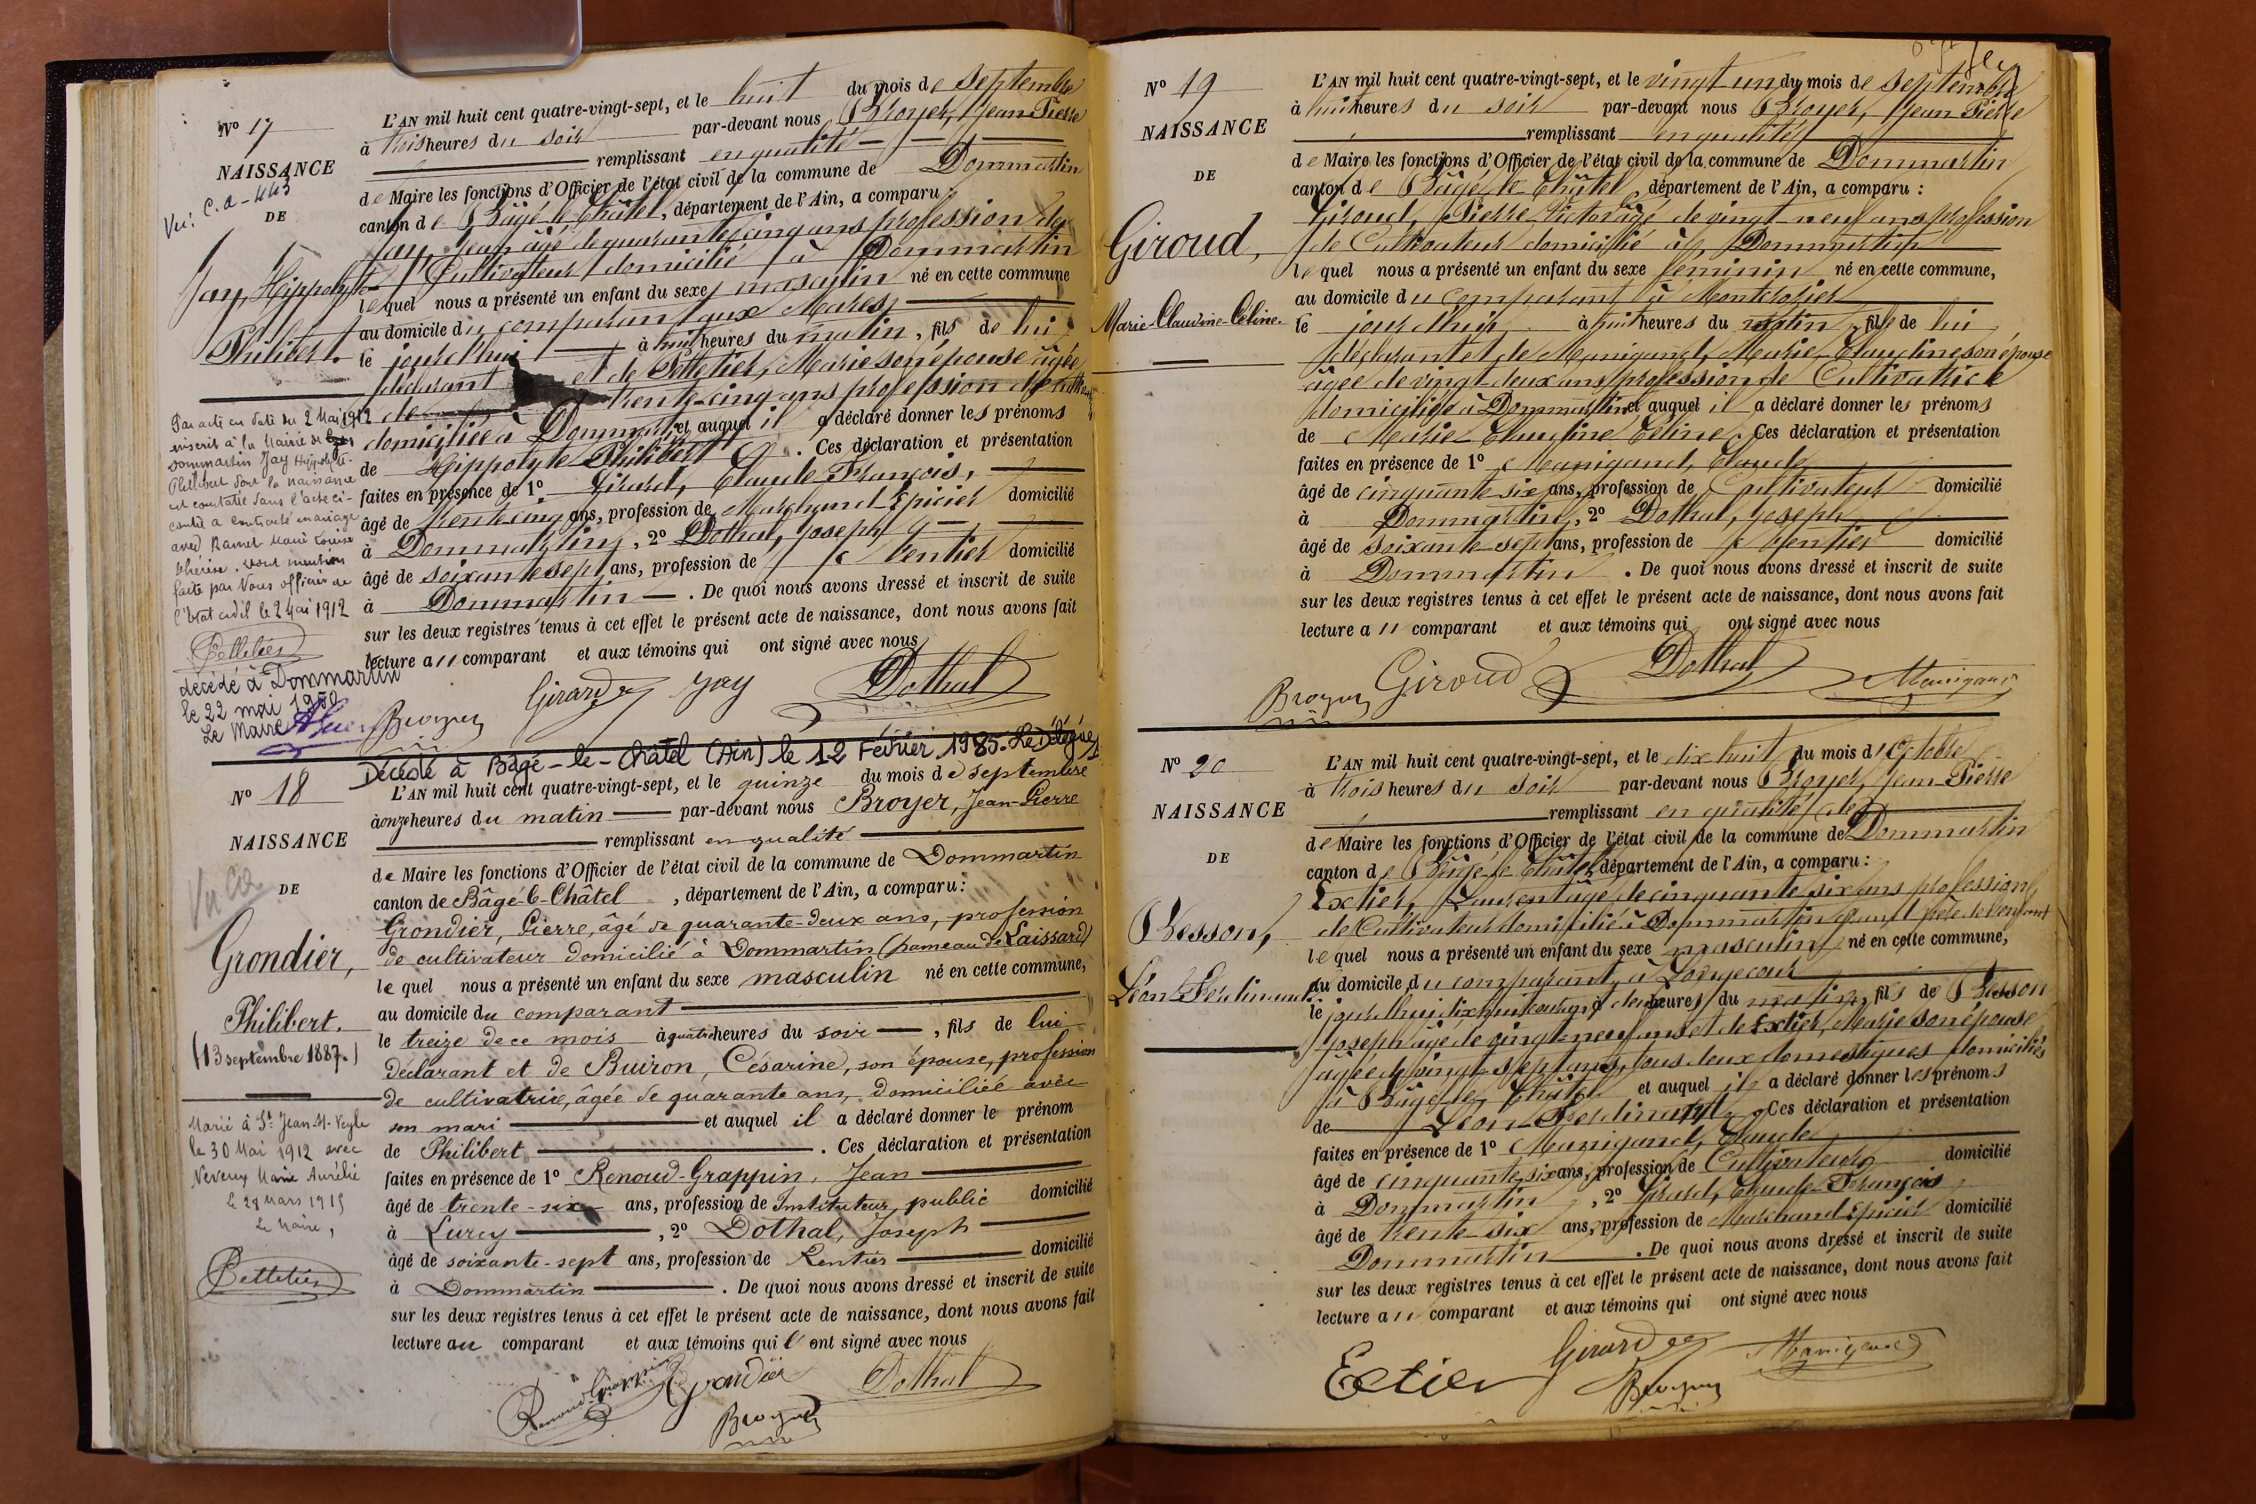 Nº 17
NAISSANCE
Vu: C.a-443
DE
Jay, Hippolyte
Philibert.
Par acte en date du 2 Mai 1912
inscrit à la Mairie de
Dommartin Jay Hippolyte-
Philibert dont la naissance
est constatée dans l'acte ci-
contre a contracté mariage
avec Ramet Marie Louise
. Dont mention
faite par Nous officier de
l'état civil le 2 Mai 1912
Pelletier
décédé à Dommartin
le 22 mai 1950
Le Maire
L'AN mil huit cent quatre-vingt-sept, et le huit du mois de septembre
à trois heures du soir par-devant nous Broyer, Jean-Pierre
remplissant en qualité
de Maire les fonctions d'Officier de l'état civil de la commune de Dommartin
canton de Bâgé-le-Châtel, département de l'Ain, a comparu :
Jay, Jean âgé de quarante cinq ans profession de
Cultivateur domicilié à Dommartin
lequel nous a présenté un enfant du sexe masculin né en cette commune
au domicile du comparant aux Mares
le jourd'hui à huit heures du matin, fils de lui
déclarant et de Pelletier, Marie son épouse âgée
de trente-cinq ans profession de
domiciliée à Dommartin et auquel il a déclaré donner les prénoms
de Hippolyte Philibert. Ces déclaration et présentation
faites en présence de 1º Girard, Claude François,
âgé de trente cinq ans, profession de Marchand-Epicier domicilié
à Dommartin, 2º Dothal, Joseph
âgé de soixante sept ans, profession de Rentier domicilié
à Dommartin. De quoi nous avons dressé et inscrit de suite
sur les deux registres tenus à cet effet le présent acte de naissance, dont nous avons fait
lecture au comparant et aux témoins qui ont signé avec nous
Broyer Girard Jay Dothal
Décédé à Bâgé-le-Châtel (Ain) le 12 Février 1985. Le Délégué
Nº 18
NAISSANCE
Vu Ca
DE
Grondier,
Philibert.
(13 septembre 1887.)
Marié à St Jean-s/-Veyle
le 30 Mai 1912 avec
Neveux Marie Aurélie
Le 28 Mars 1915
Le Maire,
Pelletier
L'AN mil huit cent quatre-vingt-sept, et le quinze du mois de septembre
à onze heures du matin par-devant nous Broyer, Jean-Pierre
remplissant en qualité
de Maire les fonctions d'Officier de l'état civil de la commune de Dommartin
canton de Bâgé-le-Châtel, département de l'Ain, a comparu :
Grondier, Pierre, âgé de quarante-deux ans, profession
de cultivateur domicilié à Dommartin (hameau de Laissard)
lequel nous a présenté un enfant du sexe masculin né en cette commune,
au domicile du comparant
le treize de ce mois à quatre heures du soir, fils de lui
déclarant et de Buiron, Césarine, son épouse, profession
de cultivatrice, âgée de quarante ans, domiciliée avec
son mari et auquel il a déclaré donner le prénom
de Philibert. Ces déclaration et présentation
faites en présence de 1º Renoud-Grappin, Jean
âgé de trente-six ans, profession de Instituteur public domicilié
à Lurcy, 2º Dothal, Joseph
âgé de soixante-sept ans, profession de Rentier domicilié
à Dommartin. De quoi nous avons dressé et inscrit de suite
sur les deux registres tenus à cet effet le présent acte de naissance, dont nous avons fait
lecture au comparant et aux témoins qui l'ont signé avec nous
Renoud-Grappin Grondier Dothal
Broyer
Nº 19
NAISSANCE
DE
Giroud,
Marie-Claudine-Céline.
L'AN mil huit cent quatre-vingt-sept, et le vingt un du mois de septembre
à huit heures du soir par-devant nous Broyer, Jean Pierre
remplissant en qualité
de Maire les fonctions d'Officier de l'état civil de la commune de Dommartin
canton de Bâgé-le-Châtel département de l'Ain, a comparu :
Giroud, Pierre Victor âgé de vingt neuf ans profession
de Cultivateur domicilié à Dommartin
lequel nous a présenté un enfant du sexe féminin né en cette commune,
au domicile du comparant à Montcrozier
le jourd'hui à huit heures du matin, fille de lui
déclarant et de Manigand, Marie-Claudine son épouse
âgée de vingt-deux ans profession de Cultivatrice
domiciliée à Dommartin et auquel il a déclaré donner les prénoms
de Marie-Claudine Céline. Ces déclaration et présentation
faites en présence de 1º Manigand, Claude
âgé de cinquante six ans, profession de Cultivateur domicilié
à Dommartin, 2º Dothal, Joseph
âgé de soixante-sept ans, profession de Rentier domicilié
à Dommartin. De quoi nous avons dressé et inscrit de suite
sur les deux registres tenus à cet effet le présent acte de naissance, dont nous avons fait
lecture au comparant et aux témoins qui ont signé avec nous
Broyer Giroud Dothal Manigand
Nº 20
NAISSANCE
DE
Besson,
Léon-Ferdinand.
L'AN mil huit cent quatre-vingt-sept, et le dix huit du mois d'Octobre
à trois heures du soir par-devant nous Broyer, Jean-Pierre
remplissant en qualité de
de Maire les fonctions d'Officier de l'état civil de la commune de Dommartin
canton de Bâgé-le-Châtel, département de l'Ain, a comparu :
Extier, Laurent âgé de cinquante-six ans profession
de Cultivateur domicilié à Dommartin grand père de l'enfant
lequel nous a présenté un enfant du sexe masculin né en cette commune,
au domicile du comparant, à Longecour
le jourd'hui dix huit courant à deux heures du matin, fils de Besson
Joseph âgé de vingt-neuf ans et de Extier, Marie son épouse
âgée de vingt-sept ans, tous deux domestiques domiciliés
à Bâgé-le-Châtel et auquel il a déclaré donner les prénoms
de Léon-Ferdinand. Ces déclaration et présentation
faites en présence de 1º Manigand, Claude
âgé de cinquante-six ans, profession de Cultivateur domicilié
à Dommartin, 2º Girard, Claude-François
âgé de trente-six ans, profession de Marchand Epicier domicilié
Dommartin. De quoi nous avons dressé et inscrit de suite
sur les deux registres tenus à cet effet le présent acte de naissance, dont nous avons fait
lecture au comparant et aux témoins qui ont signé avec nous
Extier Girard Manigand
Broyer